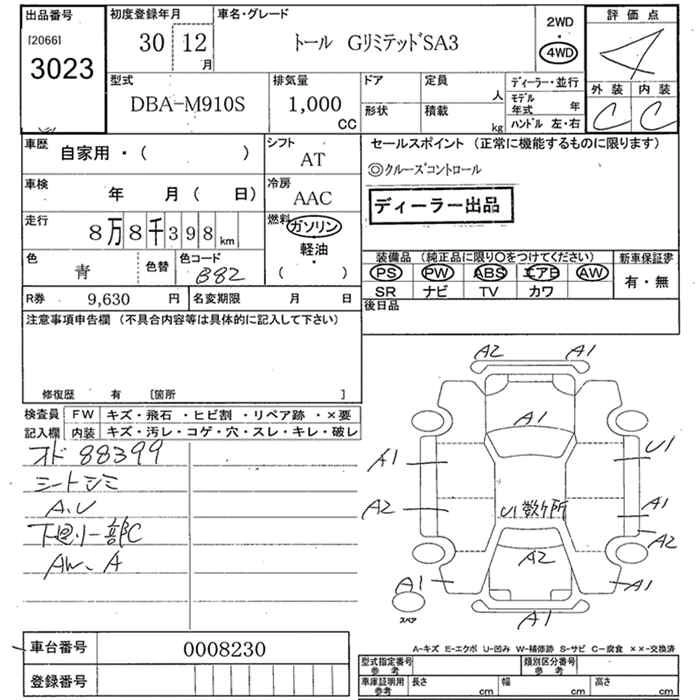 出品番号
[2066]
3023
初度登録年月
30 12
月
車名・グレード
トール GリミテッドSA3
2WD
・
4WD
評価点
4
外装 内装
C C
型式
DBA-M910S
排気量
1,000
CC
ドア
形状
定員
人
積載
kg
ディーラー・並行
モデル年式 年
ハンドル 左・右
車歴
自家用・( )
シフト
AT
車検
年 月( 日)
冷房
AAC
走行
8万8千398km
燃料
ガソリン
軽油
・
( )
色
青
色替
色コード
B82
R券 9,630 円
名変期限 月 日
セールスポイント (正常に機能するものに限ります)
◎クルーズコントロール
ディーラー出品
装備品 (純正品に限り○をつけてください)
PS PW ABS エアB AW
SR ナビ TV カワ
新車保証書
有・無
後日品
注意事項申告欄 (不具合内容等は具体的に記入して下さい)
修復歴 有 [箇所 ]
検査員記入欄
FW キズ・飛石・ヒビ割・リペア跡・×要
内装 キズ・汚レ・コゲ・穴・スレ・キレ・破レ
オド 88399
シートシミ
A.U
下廻り一部C
AW.A
A2 A1
A1
A1 U1
A2 U1数ヶ所 A1
A2
A2
A1 A1
スペア
A1
車台番号 0008230
登録番号
A-キズ E-エクボ U-凹み W-補修跡 S-サビ C-腐食 ××-交換済
型式指定番号
参考
類別区分番号
参考
車庫証明用
参考
長さ cm 幅 cm 高さ cm